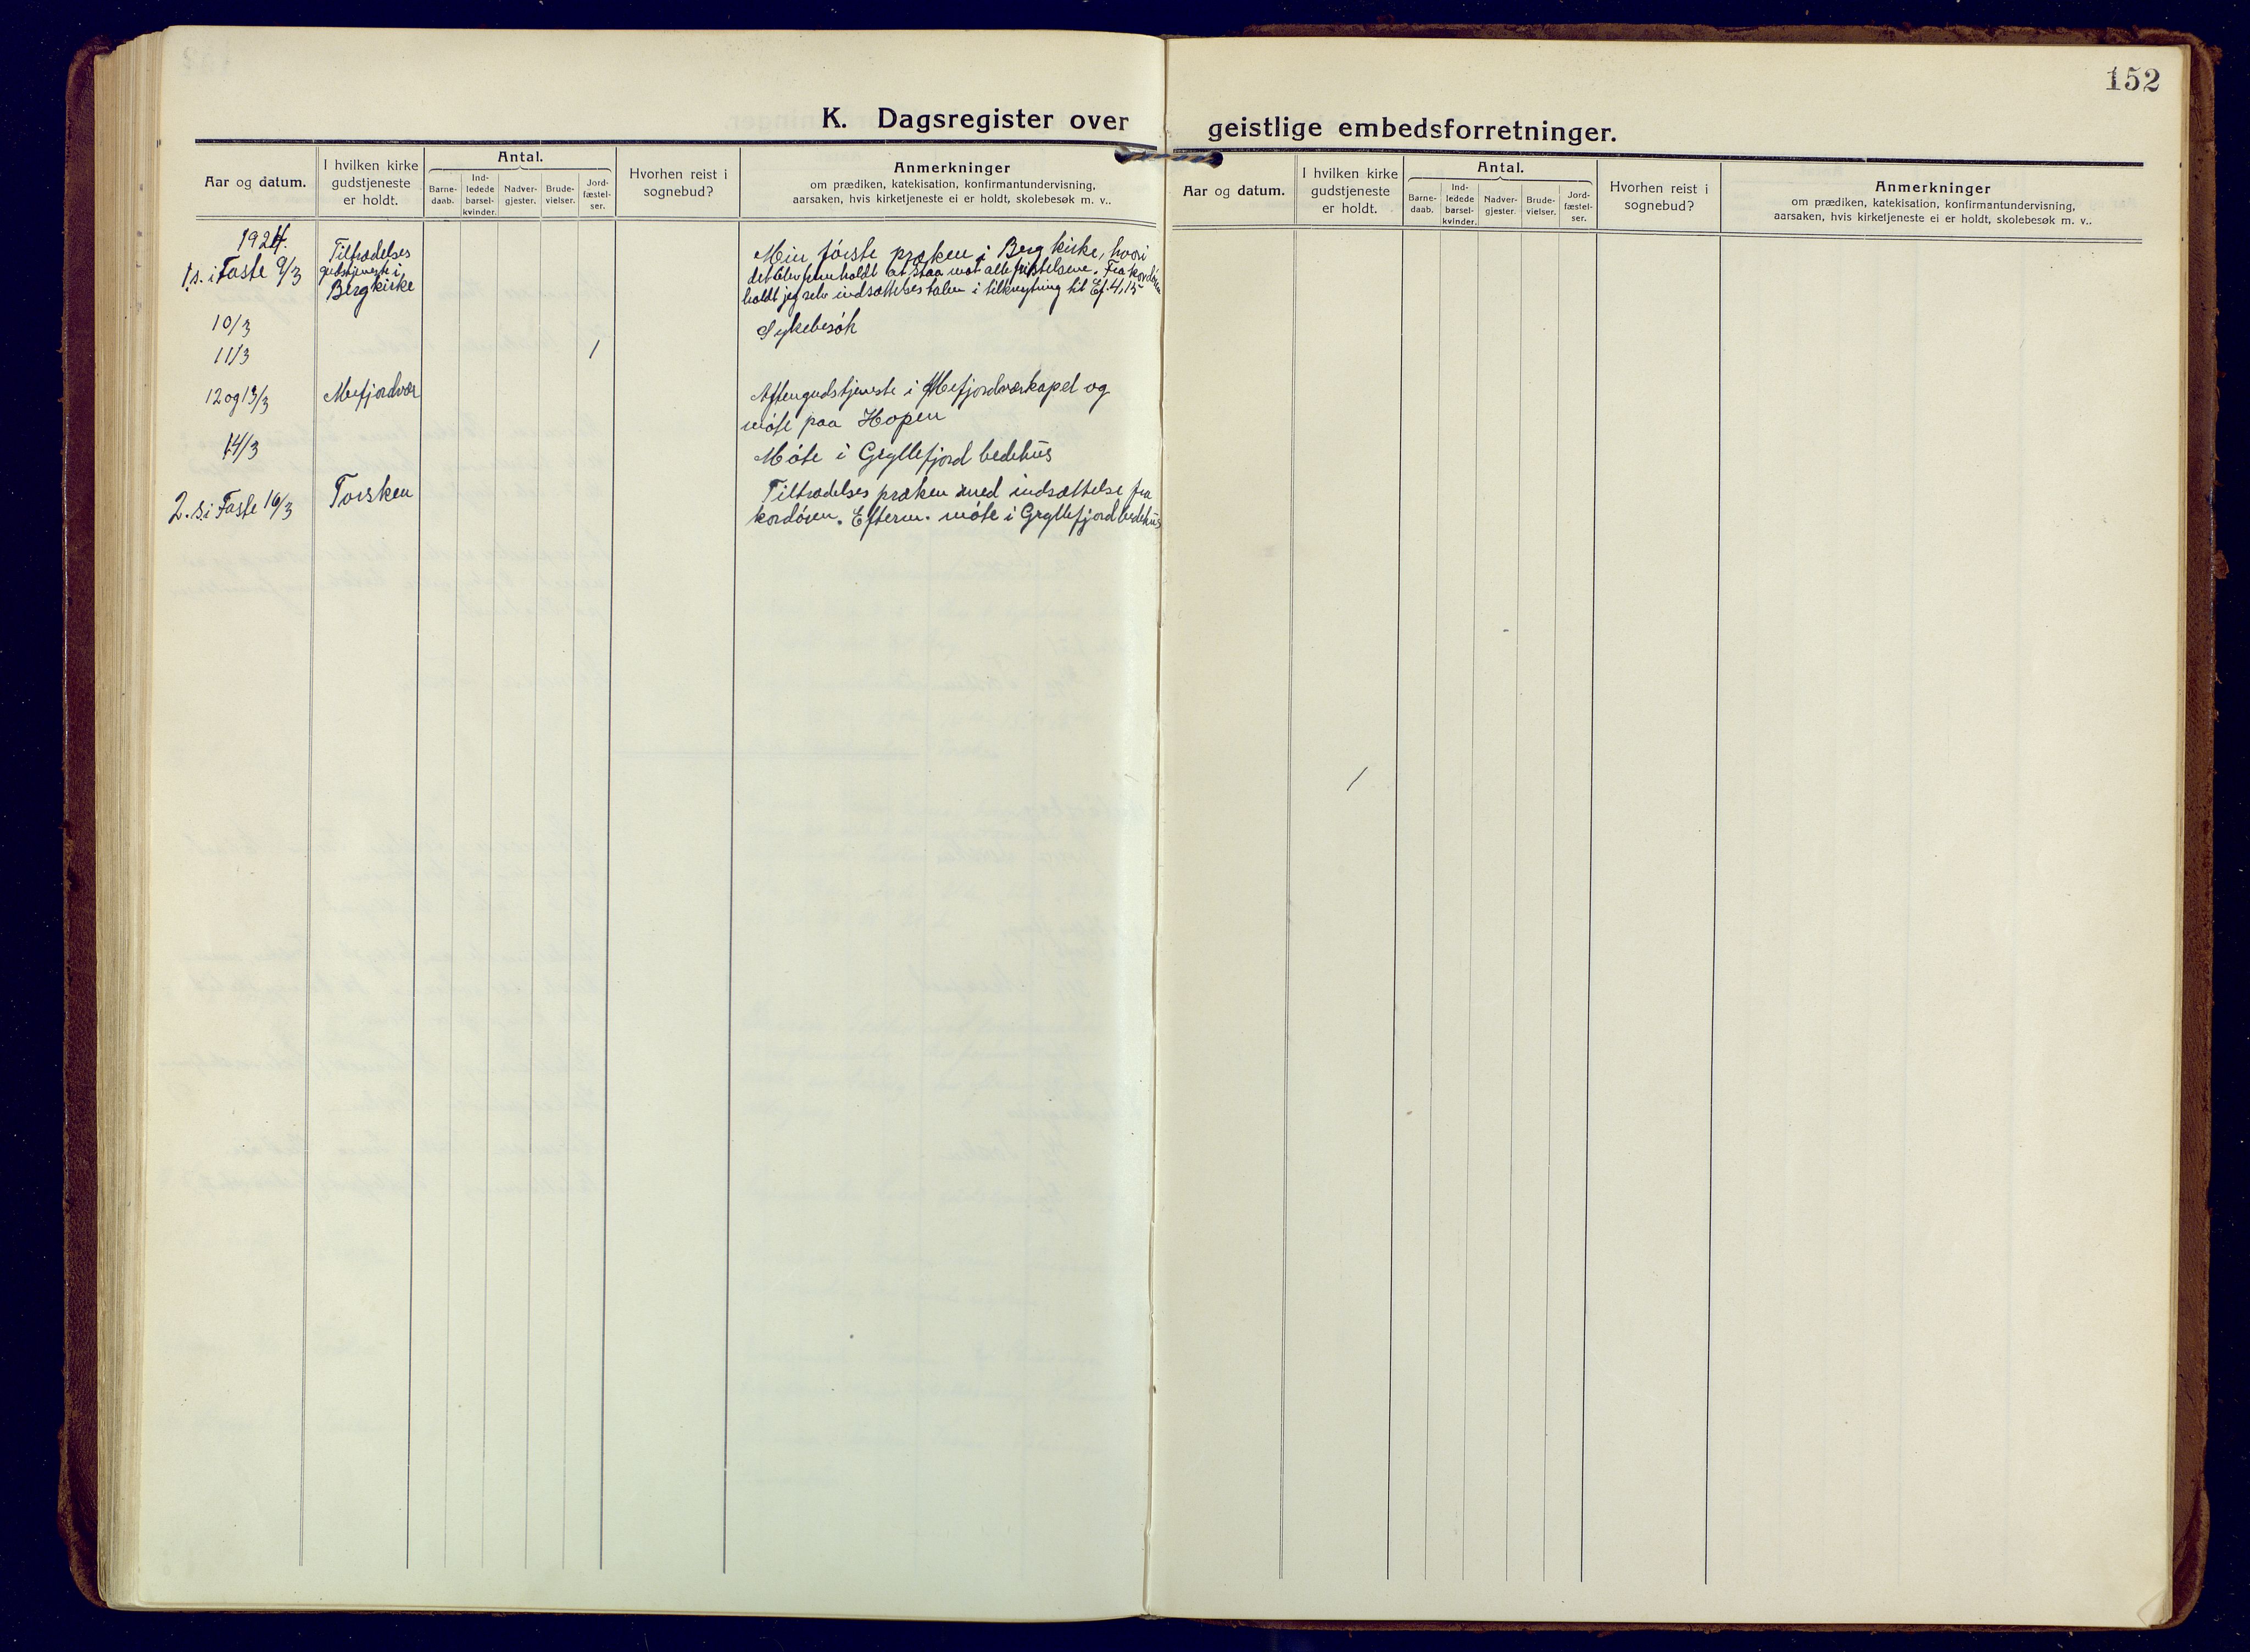 152
K. Dagsregister over geistlige embedsforretninger.
Aar og datum.
I hvilken kirke
gudstjeneste
er holdt.
Antal.
Barne-
daab.
Ind-
ledede
barsel-
kvinder.
Nadver-
gjester.
Brude-
vielser.
Jord-
fæstel-
ser.
Hvorhen reist i
sognebud?
Anmerkninger
om prædiken, katekisation, konfirmantundervisning,
aarsaken, hvis kirketjeneste ei er holdt, skolebesøk m. v..
1924.
1 s. i Faste 9/3
Tiltrædelses
gudstjeneste i
Berg kirke
Min første præken i Berg kirke, hvori
det blev fremholdt at staa mot alle fristelsene. Fra kordøren
holdt jeg selv indsættelsestalen i tilknytning til Ef. 4, 15
10/3
Sykebesøk
11/3
1
12 og 13/3
Mefjordvær
Aftengudstjeneste i Mefjordværkapel og
møte paa Hopen
14/3
Møte i Gryllefjord bedehus
2. s. i Faste 16/3
Torsken
Tiltrædelsespræken med indsættelse fra
kordøren. Efterm. møte i Gryllefjord bedehus
Aar og datum.
I hvilken kirke
gudstjeneste
er holdt.
Antal.
Barne-
daab.
Ind-
ledede
barsel-
kvinder.
Nadver-
gjester.
Brude-
vielser.
Jord-
fæstel-
ser.
Hvorhen reist i
sognebud?
Anmerkninger
om prædiken, katekisation, konfirmantundervisning,
aarsaken, hvis kirketjeneste ei er holdt, skolebesøk m. v..